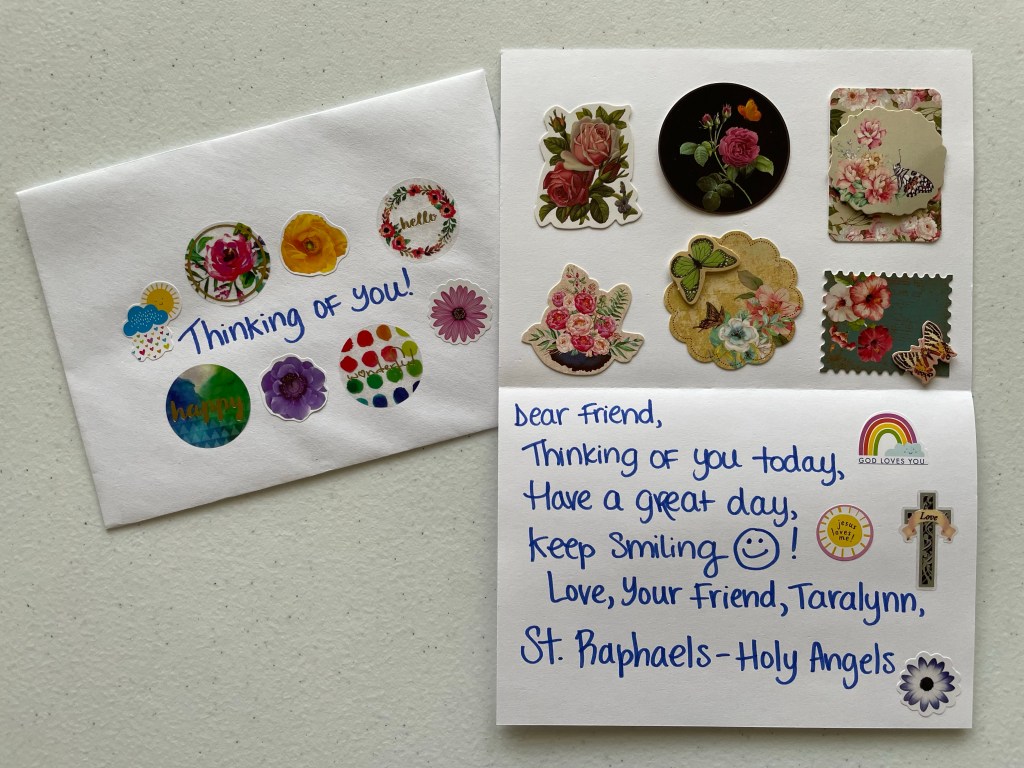 hello
Thinking of you!
happy
wonderful
Dear Friend,
Thinking of you today,
Have a great day,
Keep Smiling !
Love, Your Friend, Taralynn,
St. Raphaels - Holy Angels
GOD LOVES YOU
jesus
loves
me!
Love